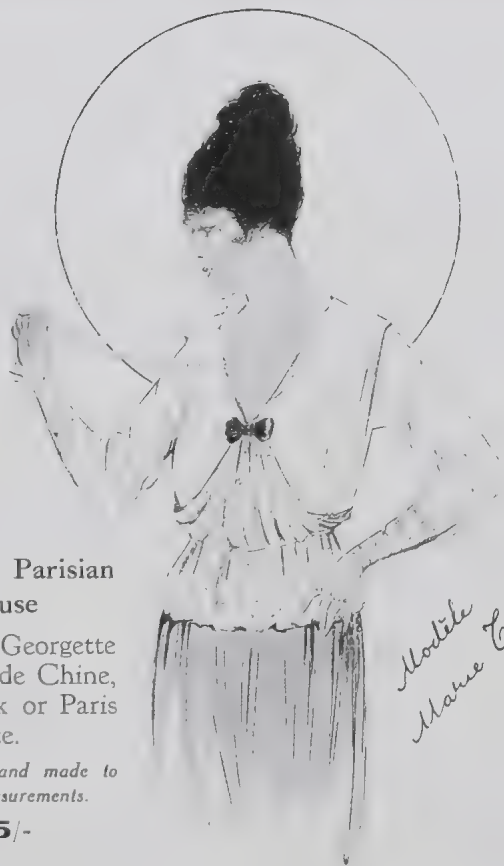 Parisian
use
Georgette
de Chine,
k or Paris
e.
and made to
surements.
5/-
Modèle
Marie